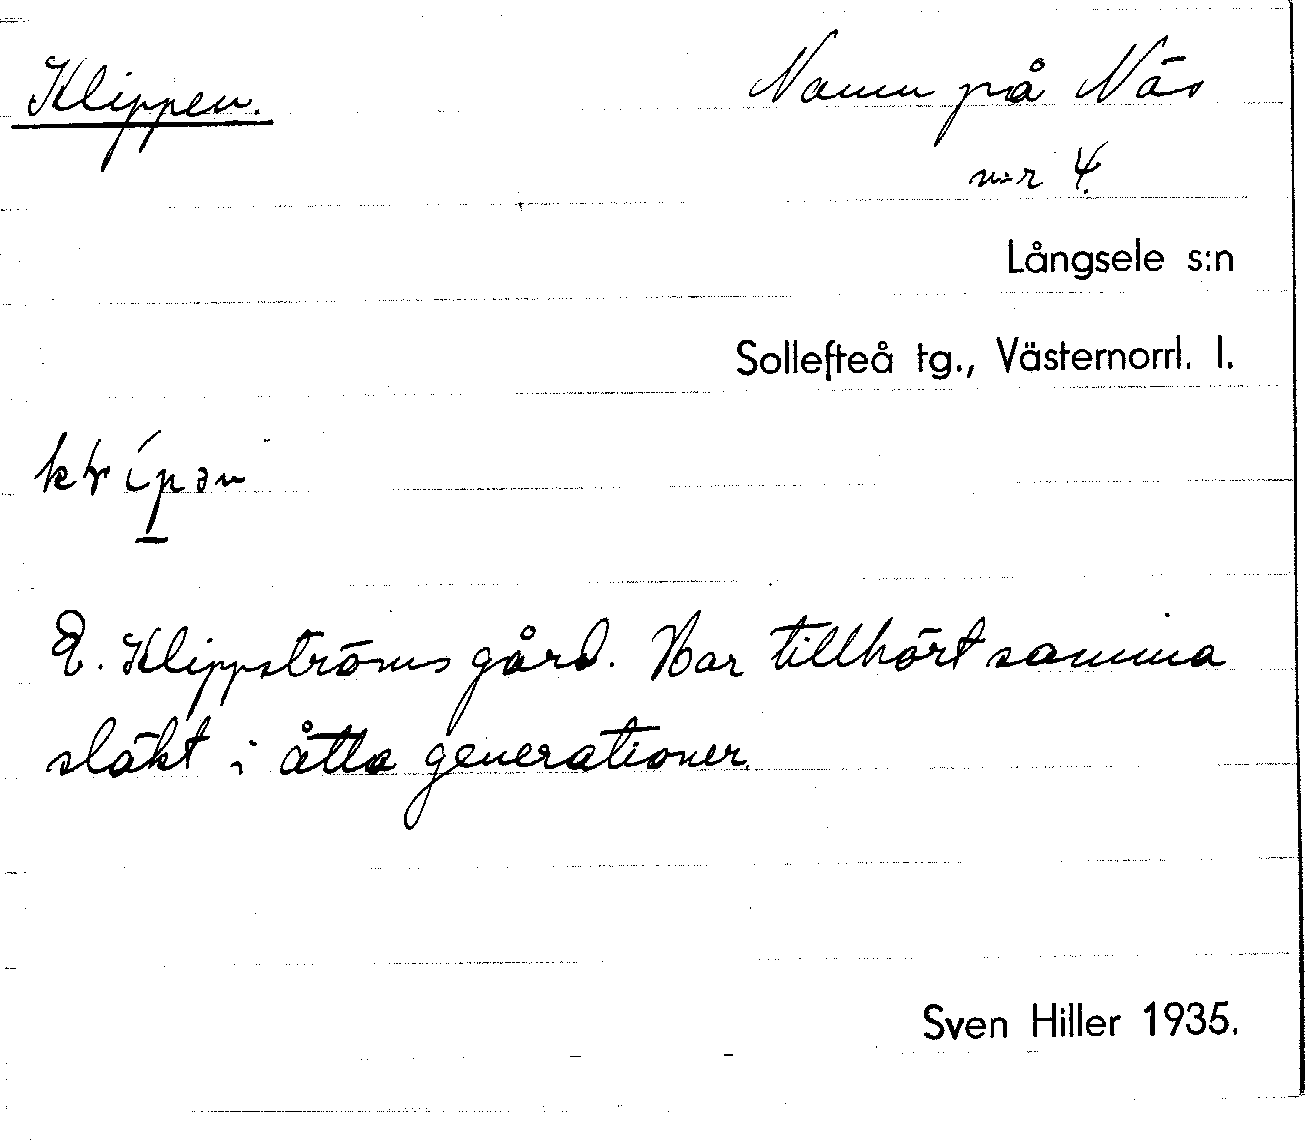 Klippen. Namn på Näs
n:r 4.
Långsele s:n
Sollefteå tg., Västernorrl. l.
E. Klippströms gård. Har tillhört samma
släkt i åtta generationer.
Sven Hiller 1935.